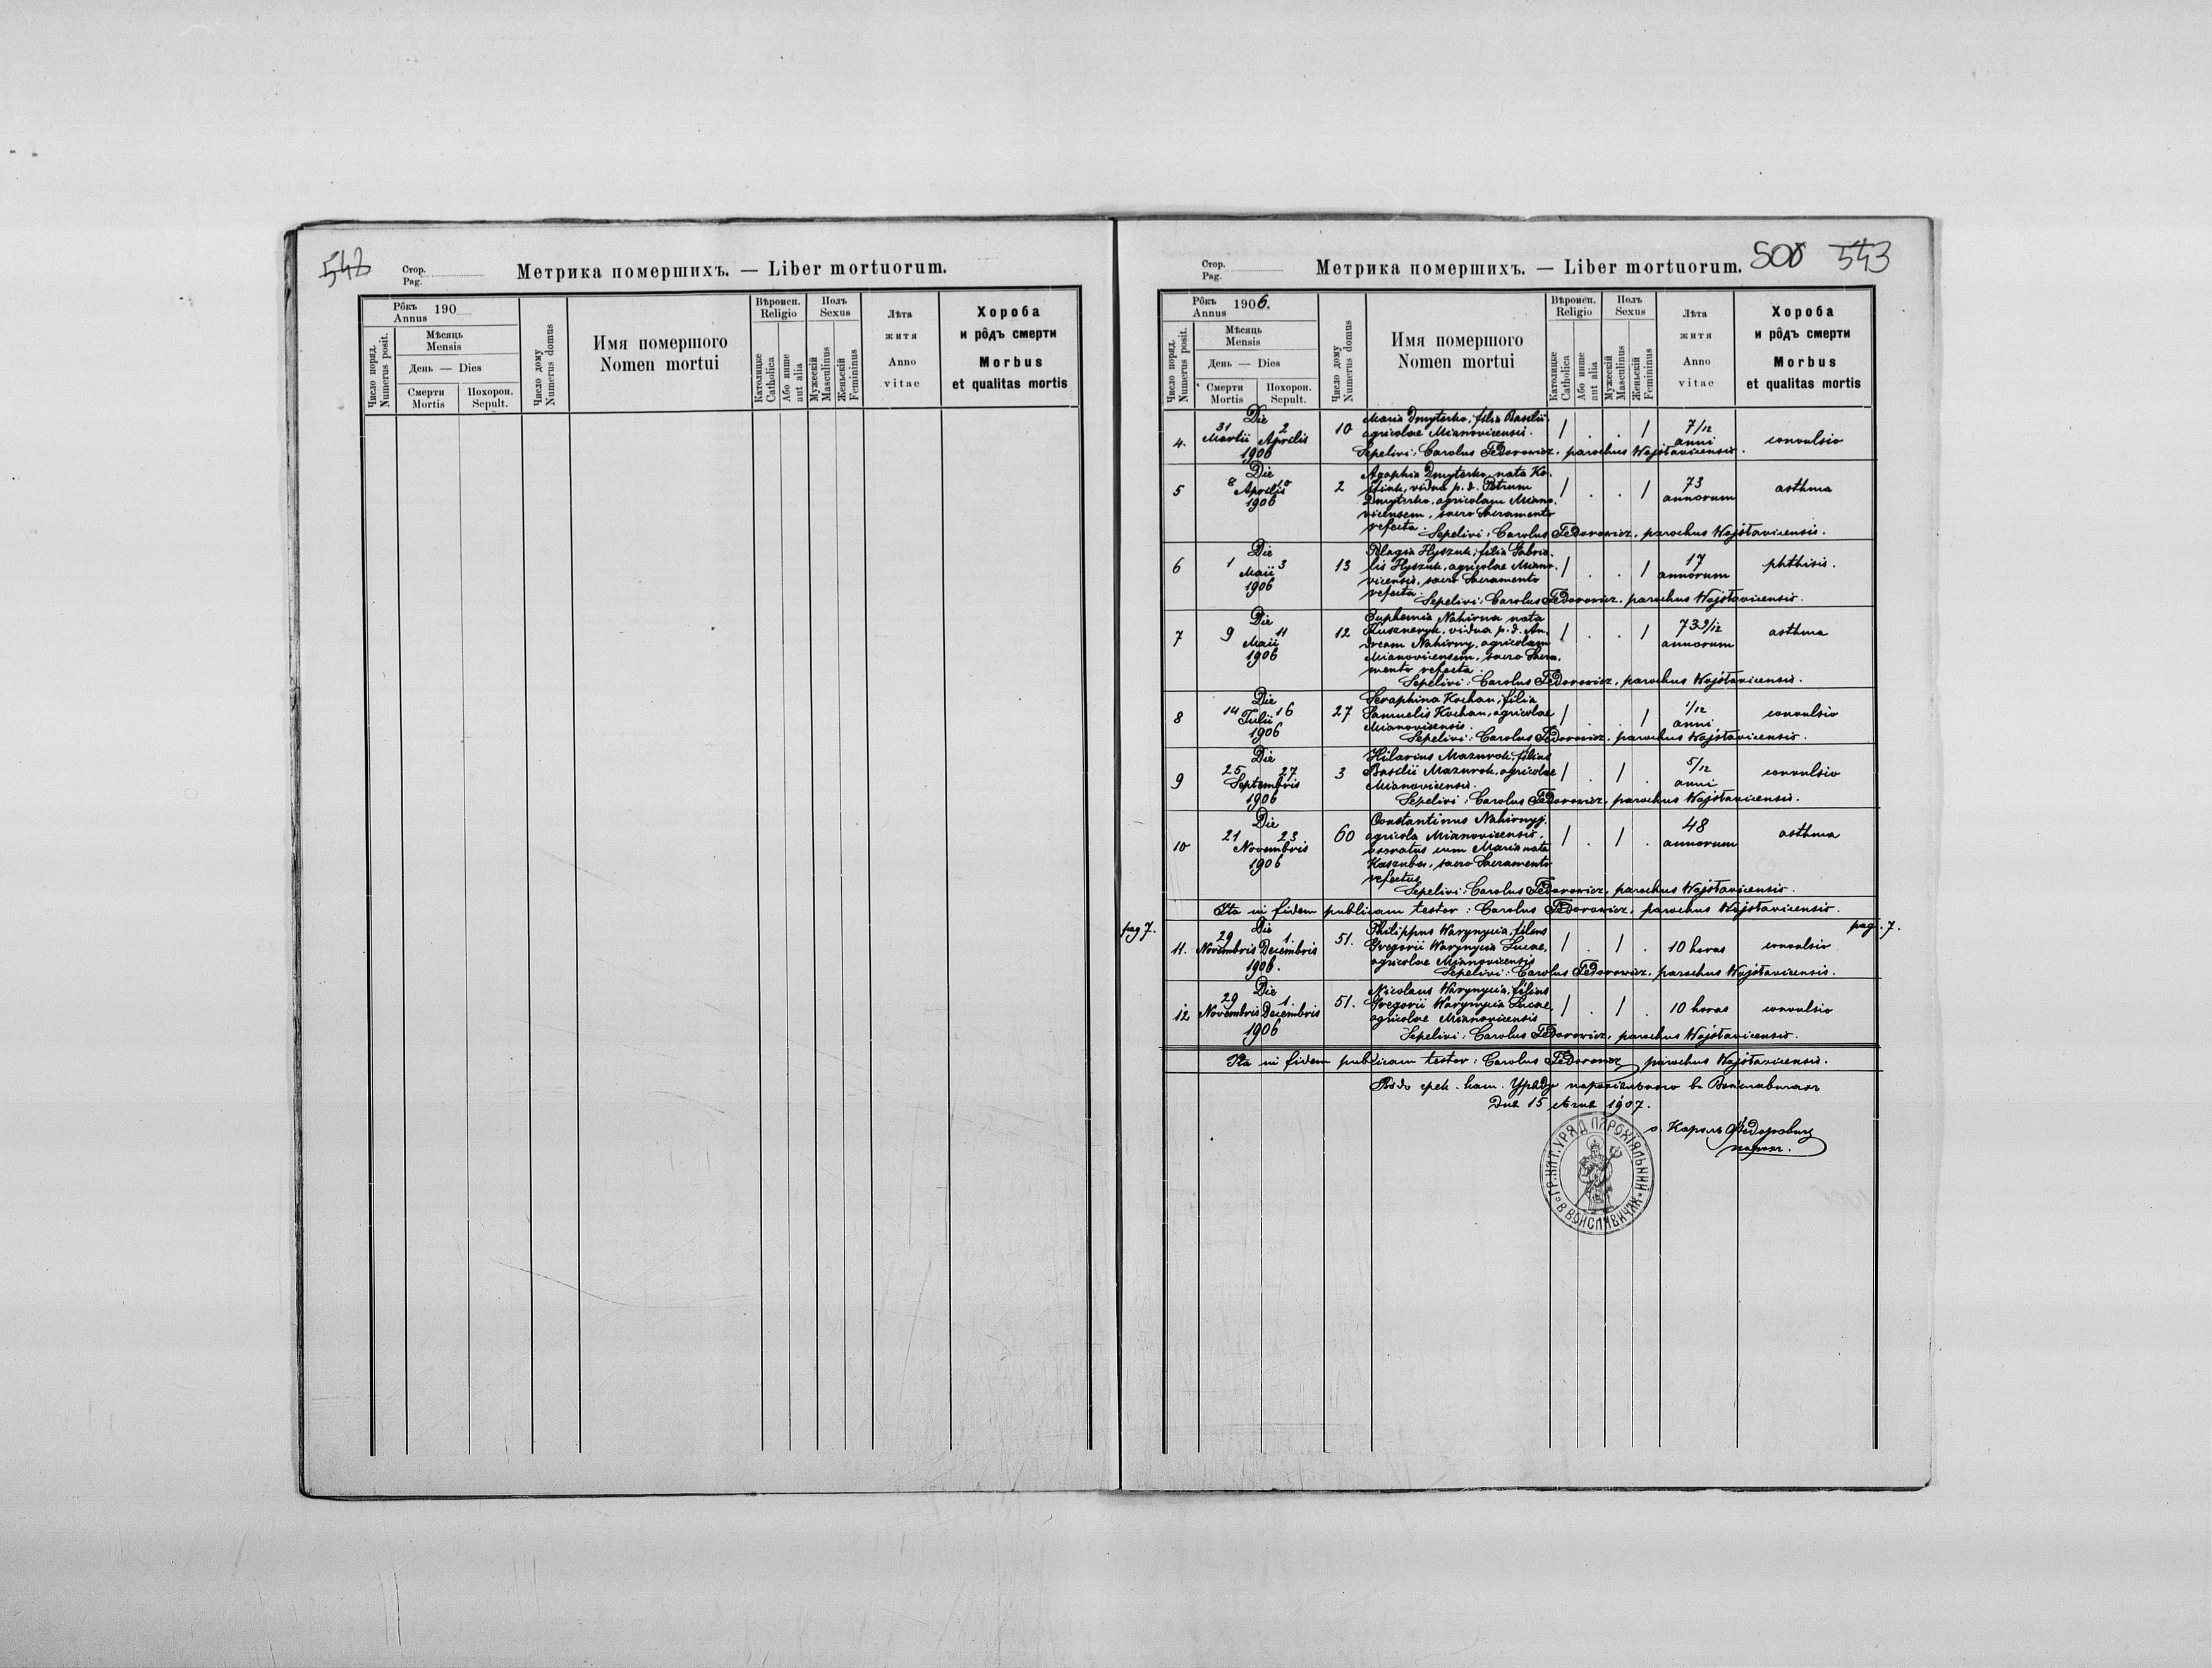 542
Стор.
Pag.
Метрика помершихъ. — Liber mortuorum.
Рôкъ
Annus 190
Мѣсяць
Mensis
День — Dies
Смерти
Mortis
Похорон.
Sepult.
Число поряд.
Numerus posit.
Число дому
Numerus domus
Имя помершого
Nomen mortui
Вѣроисп.
Religio
Католицке
Catholica
Або инше
aut alia
Полъ
Sexus
Мужескій
Masculinus
Женьскій
Femininus
Лѣта
житя
Anno
vitae
Хороба
и рôдъ смерти
Morbus
et qualitas mortis
Стор.
Pag.
Метрика помершихъ. — Liber mortuorum.
500 543
Рôкъ
Annus 1906.
Мѣсяць
Mensis
День — Dies
Смерти
Mortis
Похорон.
Sepult.
Число поряд.
Numerus posit.
Число дому
Numerus domus
Имя помершого
Nomen mortui
Вѣроисп.
Religio
Католицке
Catholica
Або инше
aut alia
Полъ
Sexus
Мужескій
Masculinus
Женьскій
Femininus
Лѣта
житя
Anno
vitae
Хороба
и рôдъ смерти
Morbus
et qualitas mortis
4. Die 31 Martii 2 Aprilis 1906 10 Maria Dmyterko, filia Basilii / . . / 7/12 anni convulsio
agricolae Mianovicensis.
Sepelivi: Carolus Fedorowicz, parochus Wojsławicensis.
5 Die 8 Aprilis 10 1906 2 Agaphia Dmyterko nata / . . / 73 annorum asthma
vidua p. d. Petrum
Dmyterko, agricolam Miano-
vicensem, sacro Sacramento
refecta. Sepelivi: Carolus Fedorowicz, parochus Wojsławicensis.
6 Die 1 Maii 3 1906 13 Pelagia Hyszuk, filia Gabrie- / . . / 17 annorum phthisis.
lis Hyszuk, agricolae Miano-
vicensis, sacro Sacramento
refecta. Sepelivi: Carolus Fedorowicz, parochus Wojsławicensis.
7 Die 9 Maii 11 1906 12 Euphemia Nahirna nata / . . / 73 9/12 annorum asthma
Kuszneryk, vidua p. d. An-
dream Nahirny, agricolam
Mianovicensem, sacro Sacra-
mento refecta.
Sepelivi: Carolus Fedorowicz, parochus Wojsławicensis.
8 Die 14 Julii 16 1906 27 Seraphina Kochan, filia / . . / 1/12 anni convulsio
Samuelis Kochan, agricolae
Mianovicensis.
Sepelivi: Carolus Fedorowicz, parochus Wojsławicensis.
9 Die 25 Septembris 27 1906 3 Hilarius Mazurok, filius / . / . 5/12 anni convulsio
Basilii Mazurok, agricolae
Mianovicensis.
Sepelivi: Carolus Fedorowicz, parochus Wojsławicensis.
10 Die 21 Novembris 23 1906 60 Constantinus Nahirnyj, / . / . 48 annorum asthma
agricola Mianovicensis,
uxoratus cum Maria nata
Kaszuba, sacro Sacramento
refectus
Sepelivi: Carolus Fedorowicz, parochus Wojsławicensis.
Ita in fidem publicam testor: Carolus Fedorowicz, parochus Wojsławicensis.
pag 7. pag. 7.
11. Die 29 Novembris 1. Decembris 1906. 51. Philippus Warynycia, filius / . / . 10 horas convulsio
Gregorii Warynycia Lucae,
agricolae Mianovicensis
Sepelivi: Carolus Fedorowicz, parochus Wojsławicensis.
12 Die 29 Novembris 1. Decembris 1906 51. Nicolaus Warynycia, filius / . / . 10 horas convulsio
Gregorii Warynycia Lucae
agricolae Mianovicensis
Sepelivi: Carolus Fedorowicz, parochus Wojsławicensis.
Ita in fidem publicam testor: Carolus Fedorowicz parochus Wojsławicensis.
Вôдъ грек. кат. Уряду парохіяльного въ Войславичахъ
Дня 15 1907.
о. Кароль Федорович
парох.
ГР. КАТ. УРЯД ПАРОХІЯЛЬНИЙ В ВОЙСЛАВИЧАХ